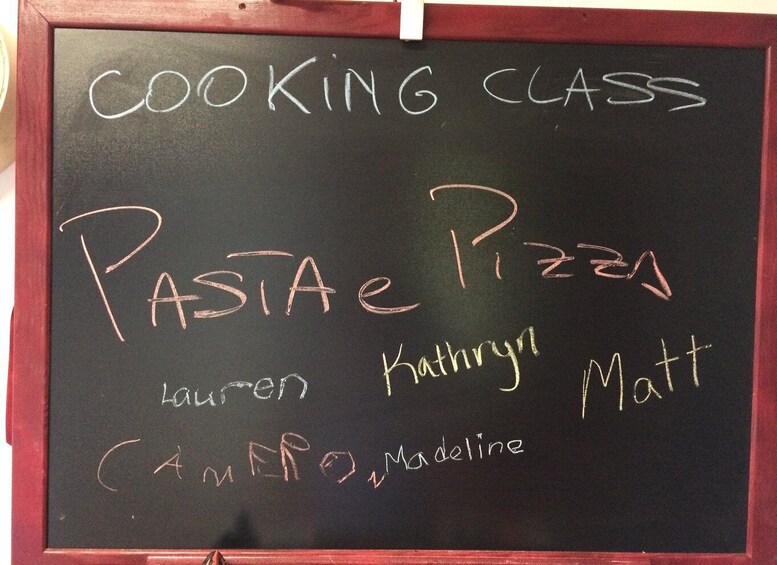 COOKING CLASS
PASTA e PIZZA
Lauren Kathryn Matt
CAMERON Madeline